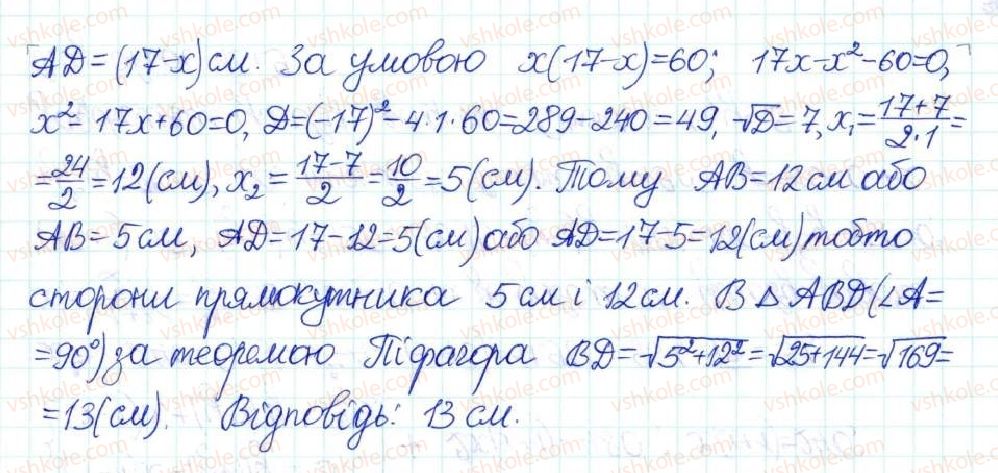 AD = (17-x) см. За умовою x(17-x)=60; 17x-x²-60=0,
x²-17x+60=0, D=(-17)²-4·1·60=289-240=49, √D=7, x₁=(17+7)/(2·1)=
=24/2=12(см), x₂=(17-7)/2=10/2=5(см). Тому AB=12см або
AB=5см, AD=17-12=5(см) або AD=17-5=12(см) тобто
сторони прямокутника 5см і 12см. В △ABD(∠A=
=90°) за теоремою Піфагора BD=√(5²+12²)=√(25+144)=√169=
=13(см). Відповідь: 13 см.